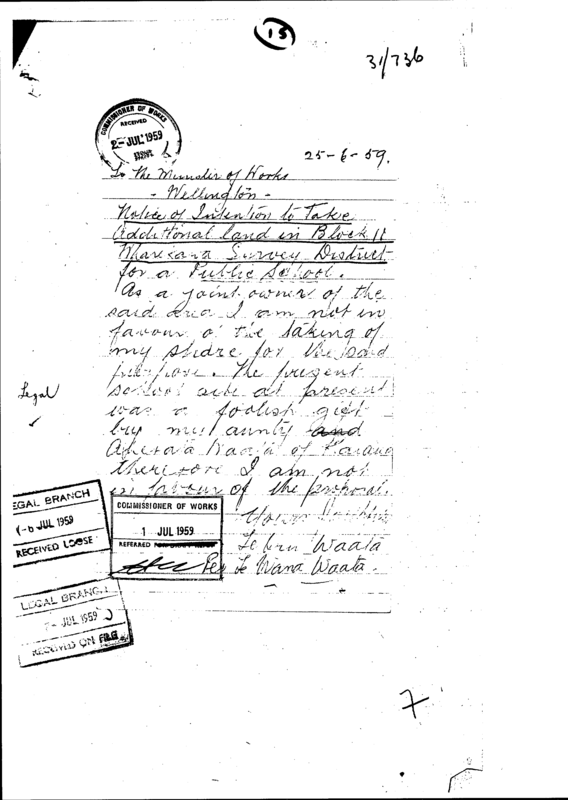 15
31/736
COMMISSIONER OF WORKS
RECEIVED
2-JUL 1959
25-6-59.
To The Minister of Works
- Wellington -
Notice of Intention to Take
Additional land in Block II
Survey District
for a Public School.
As a joint owner of the
said area I am not in
favour of the taking of
my share for the said
purpose. The present
school site at present
was a foolish gift
by my aunty and
of
therefore I am not
in favour of the proposal.
Legal
✓
Yours
Waata
Per Te Wana Waata.
LEGAL BRANCH
-6 JUL 1959
RECEIVED LOOSE
COMMISSIONER OF WORKS
1 JUL 1959
REFERRED FOR
LEGAL BRANCH
7- JUL 1959
RECEIVED ON FILE
7